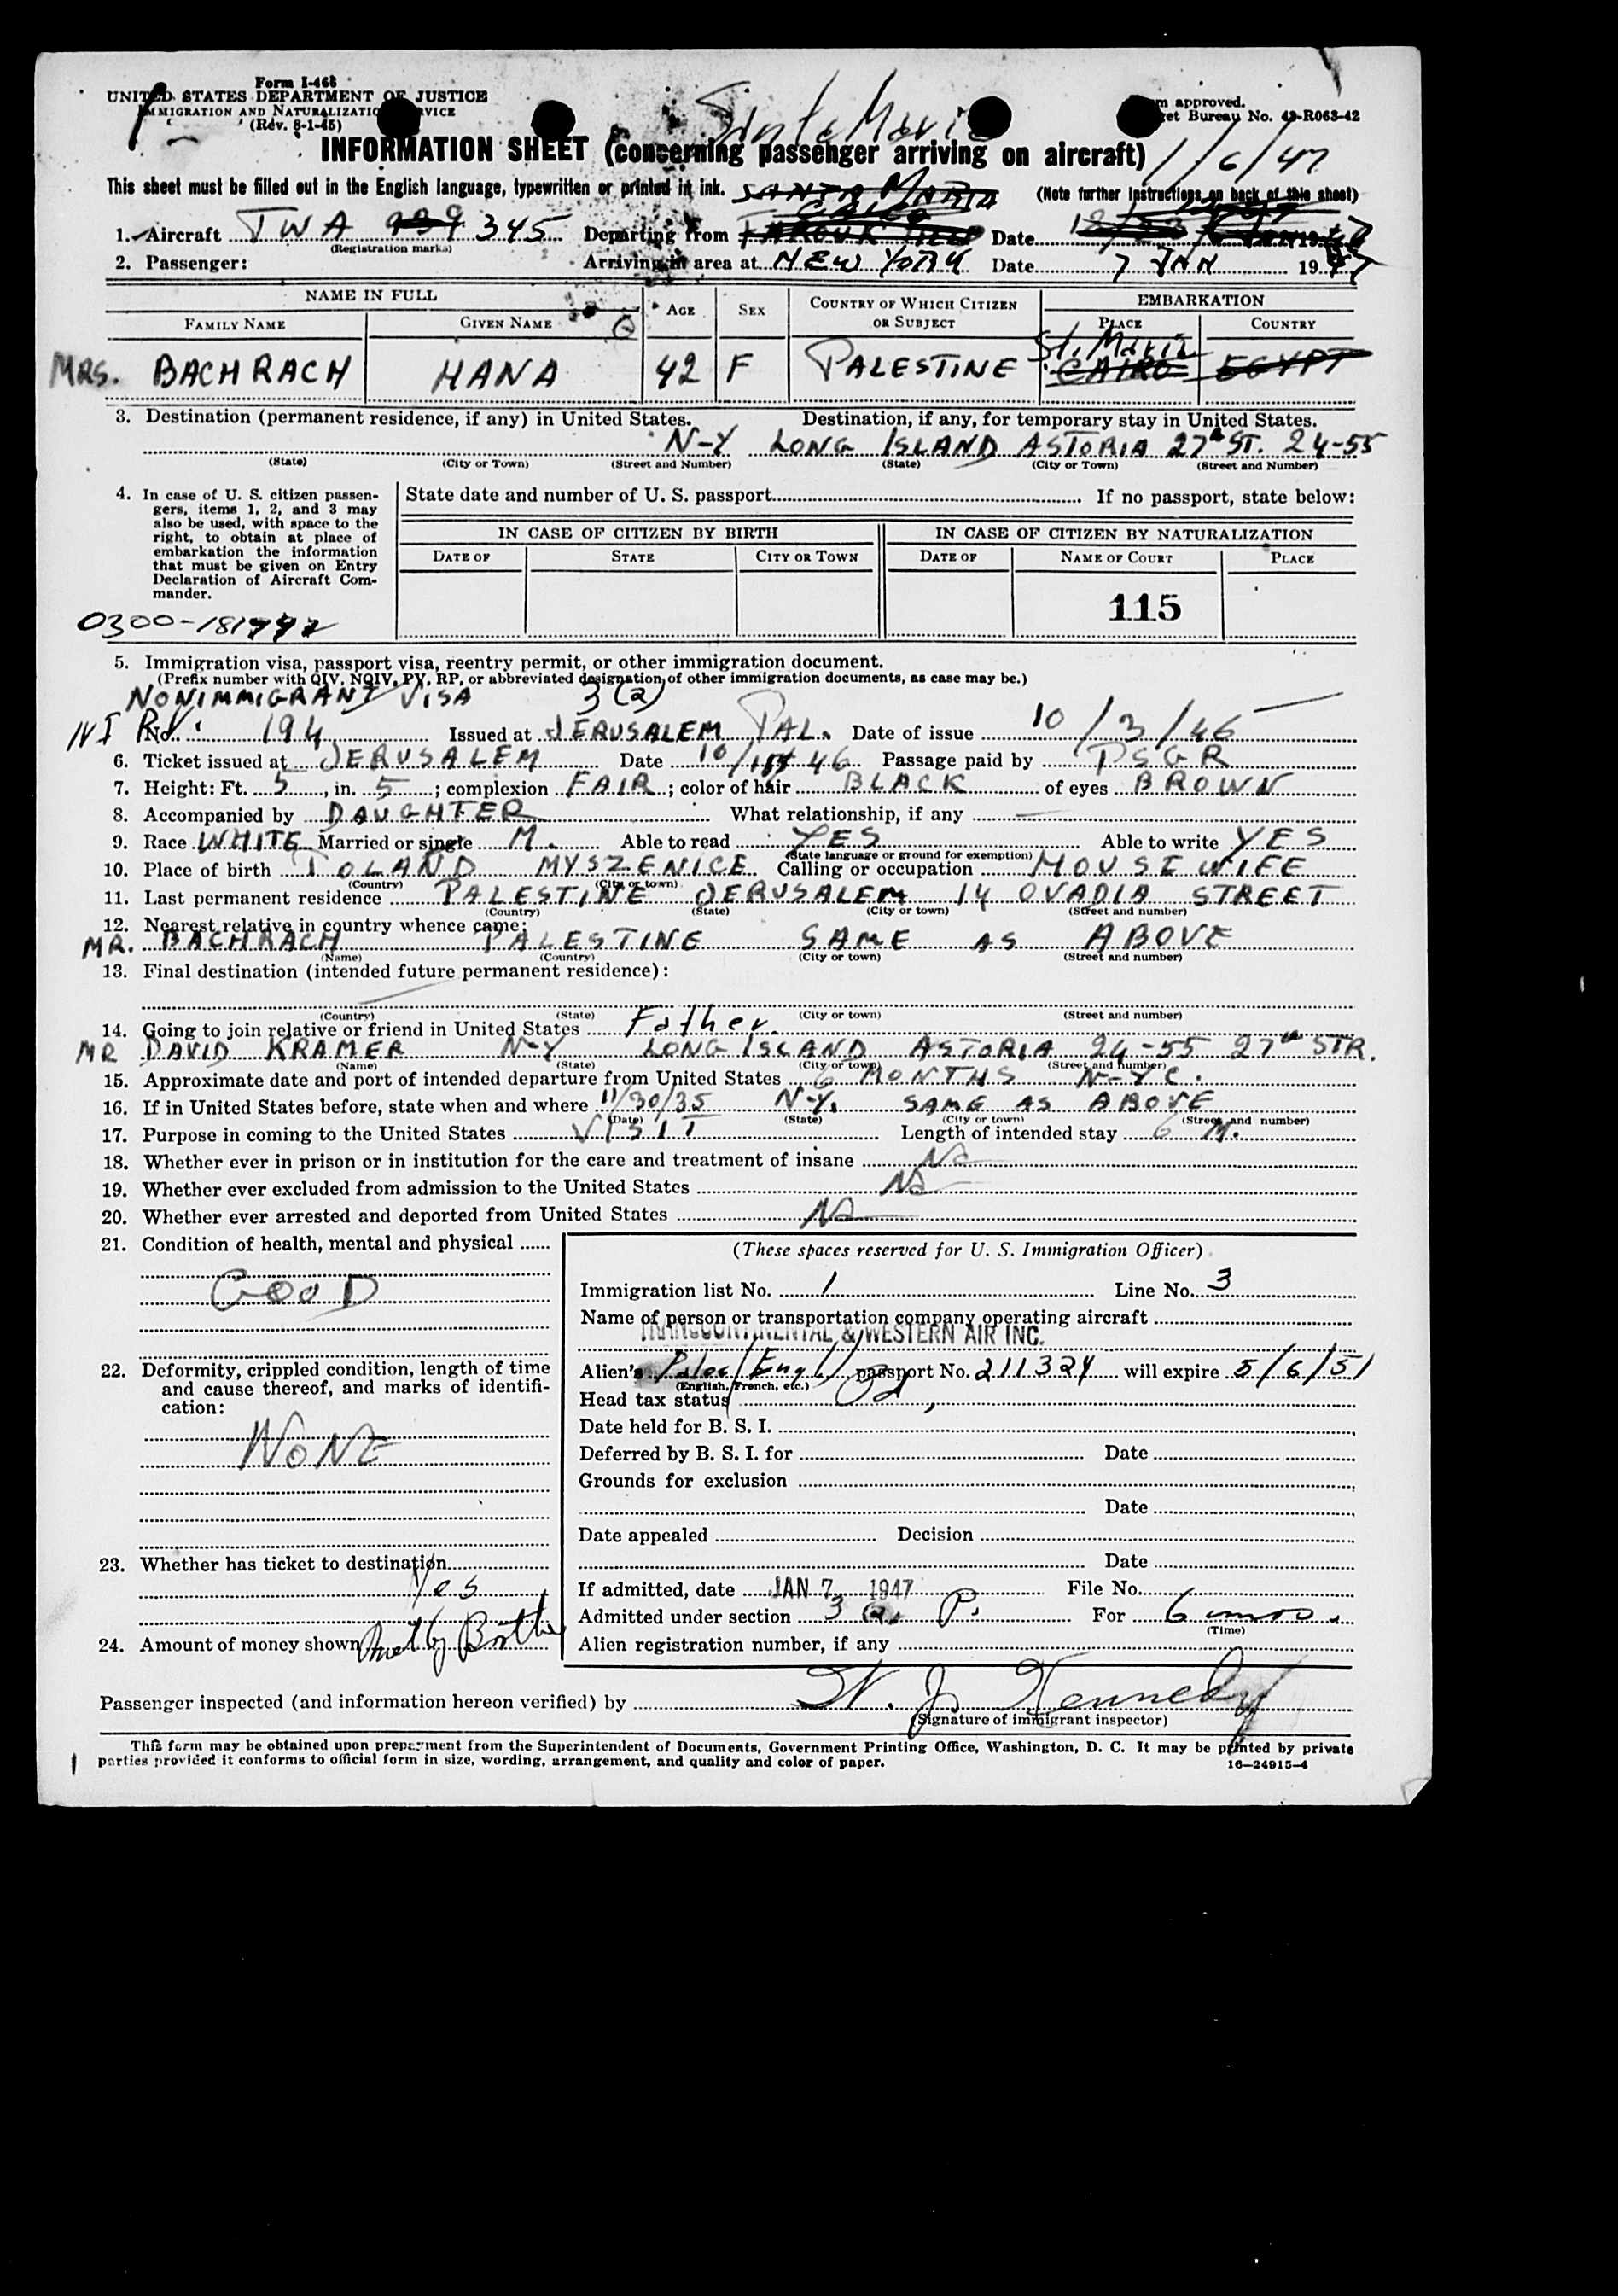 Form I-468
UNITED STATES DEPARTMENT OF JUSTICE
IMMIGRATION AND NATURALIZATION SERVICE
(Rev. 8-1-45)
Form approved.
Budget Bureau No. 43-R063-42
INFORMATION SHEET (concerning passenger arriving on aircraft) 1/6/47
This sheet must be filled out in the English language, typewritten or printed in ink. SANTA MARIA (Note further instructions on back of this sheet)
1. Aircraft TWA 939 345 Departing from Date
(Registration marks)
2. Passenger: Arriving in area at NEW YORK Date 7 JAN 1947
NAME IN FULL AGE SEX COUNTRY OF WHICH CITIZEN OR SUBJECT EMBARKATION
FAMILY NAME GIVEN NAME PLACE COUNTRY
St. Maria
MRS. BACHRACH HANA 42 F PALESTINE CAIRO EGYPT
3. Destination (permanent residence, if any) in United States. Destination, if any, for temporary stay in United States.
N-Y LONG ISLAND ASTORIA 27th ST. 24-55
(State) (City or Town) (Street and Number) (State) (City or Town) (Street and Number)
4. In case of U. S. citizen passengers, items 1, 2, and 3 may also be used, with space to the right, to obtain at place of embarkation the information that must be given on Entry Declaration of Aircraft Commander.
State date and number of U. S. passport If no passport, state below:
IN CASE OF CITIZEN BY BIRTH IN CASE OF CITIZEN BY NATURALIZATION
DATE OF STATE CITY OR TOWN DATE OF NAME OF COURT PLACE
115
5. Immigration visa, passport visa, reentry permit, or other immigration document.
(Prefix number with QIV, NQIV, PV, RP, or abbreviated designation of other immigration documents, as case may be.)
NONIMMIGRANT VISA 3(2)
No. 194 Issued at JERUSALEM PAL. Date of issue 10/3/46
6. Ticket issued at JERUSALEM Date 10/ 46 Passage paid by PSGR
7. Height: Ft. 5, in. 5; complexion FAIR; color of hair BLACK of eyes BROWN
8. Accompanied by DAUGHTER What relationship, if any
9. Race WHITE Married or single M. Able to read YES Able to write YES
(State language or ground for exemption)
10. Place of birth POLAND MYSZENICE Calling or occupation HOUSEWIFE
(Country) (City or town)
11. Last permanent residence PALESTINE JERUSALEM 14 OVADIA STREET
(Country) (State) (City or town) (Street and number)
12. Nearest relative in country whence came:
MR. BACHRACH PALESTINE SAME AS ABOVE
(Name) (Country) (City or town) (Street and number)
13. Final destination (intended future permanent residence):
(Country) (State) (City or town) (Street and number)
14. Going to join relative or friend in United States Father.
MR DAVID KRAMER N-Y LONG ISLAND ASTORIA 24-55 27th STR.
(Name) (State) (City or town) (Street and number)
15. Approximate date and port of intended departure from United States 6 MONTHS N-Y C.
16. If in United States before, state when and where 11/30/35 N-Y. SAME AS ABOVE
(Date) (State) (City or town) (Street and number)
17. Purpose in coming to the United States VISIT Length of intended stay 6 M.
18. Whether ever in prison or in institution for the care and treatment of insane NO
19. Whether ever excluded from admission to the United States NO
20. Whether ever arrested and deported from United States NO
21. Condition of health, mental and physical
GOOD
22. Deformity, crippled condition, length of time and cause thereof, and marks of identification:
NONE
23. Whether has ticket to destination
Yes
24. Amount of money shown
(These spaces reserved for U. S. Immigration Officer)
Immigration list No. 1 Line No. 3
Name of person or transportation company operating aircraft
TRANSCONTINENTAL & WESTERN AIR INC.
Alien's Pales/Engl passport No. 211324 will expire 5/6/51
(English, French, etc.)
Head tax status
Date held for B. S. I.
Deferred by B. S. I. for Date
Grounds for exclusion
Date
Date appealed Decision
Date
If admitted, date JAN 7 1947 File No.
Admitted under section 3 P. For 6 mos.
(Time)
Alien registration number, if any
Passenger inspected (and information hereon verified) by W. J. Kennedy
(Signature of immigrant inspector)
This form may be obtained upon prepayment from the Superintendent of Documents, Government Printing Office, Washington, D. C. It may be printed by private
parties provided it conforms to official form in size, wording, arrangement, and quality and color of paper. 16—24915-4